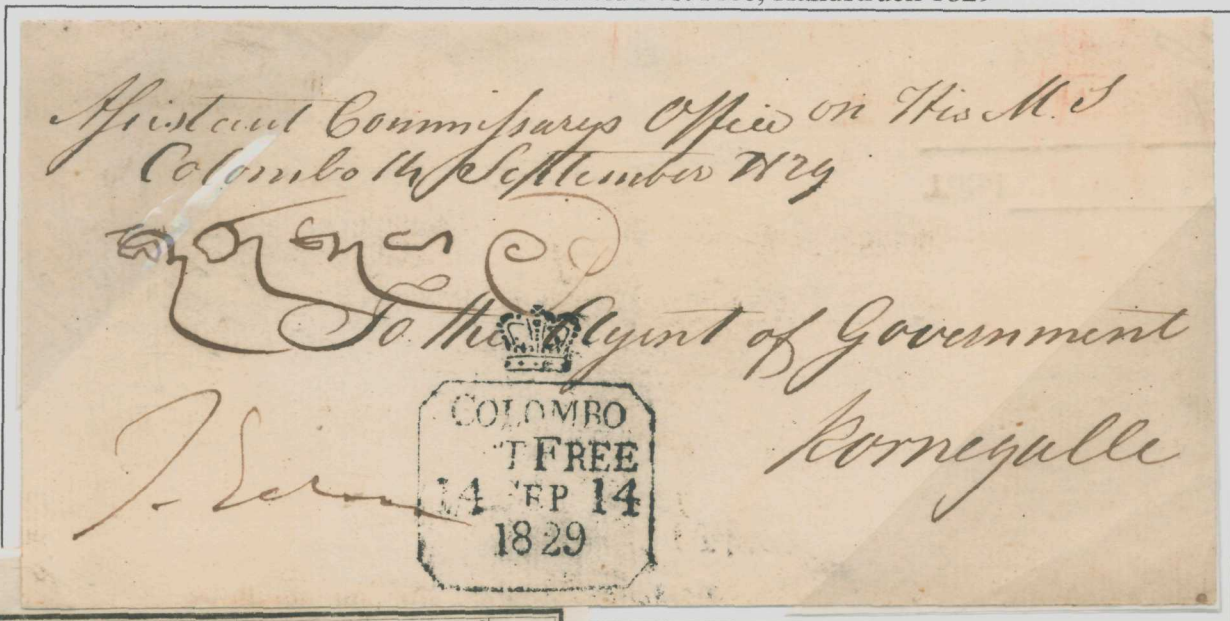 Assistant Commissarys Office on His M. S
Colombo 14 September 1829
To the Agent of Government
Kornegalle
COLOMBO
T FREE
14 EP 14
1829